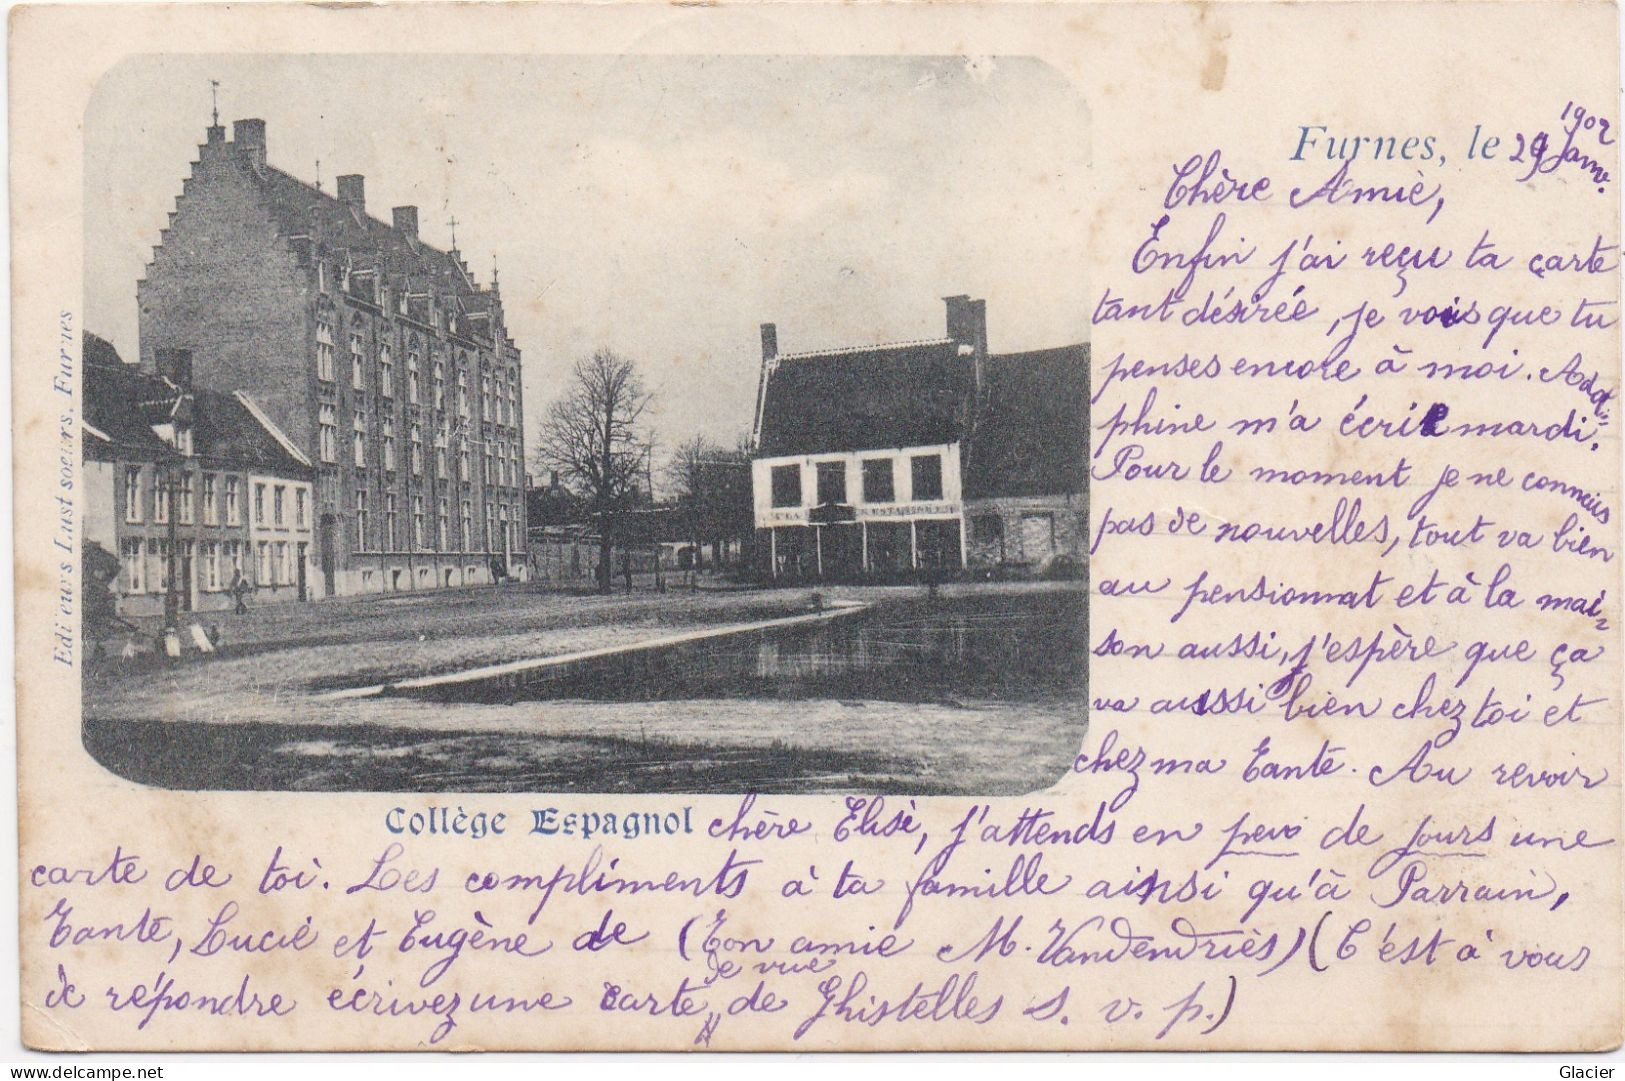 1902
Furnes, le 29 Janv.
Chère Amie,
Enfin j'ai reçu ta carte
tant désirée, je vois que tu
penses encore à moi. Adol-
phine m'a écrit mardi.
Pour le moment je ne connais
pas de nouvelles, tout va bien
au pensionnat et à la mai-
son aussi, j'espère que ça
va aussi bien chez toi et
chez ma Tante. Au revoir
Collège Espagnol chère Elise, j'attends en peu de jours une
carte de toi. Les compliments à ta famille ainsi qu'à Parrain,
Tante, Lucie et Eugène de (Ton amie M. Vandendriès) (C'est à vous
de vue
de répondre écrivez une carte de Ghistelles s. v. p.)
Editeurs Lust soeurs, Furnes
RESTAURANT
www.delcampe.net
Glacier